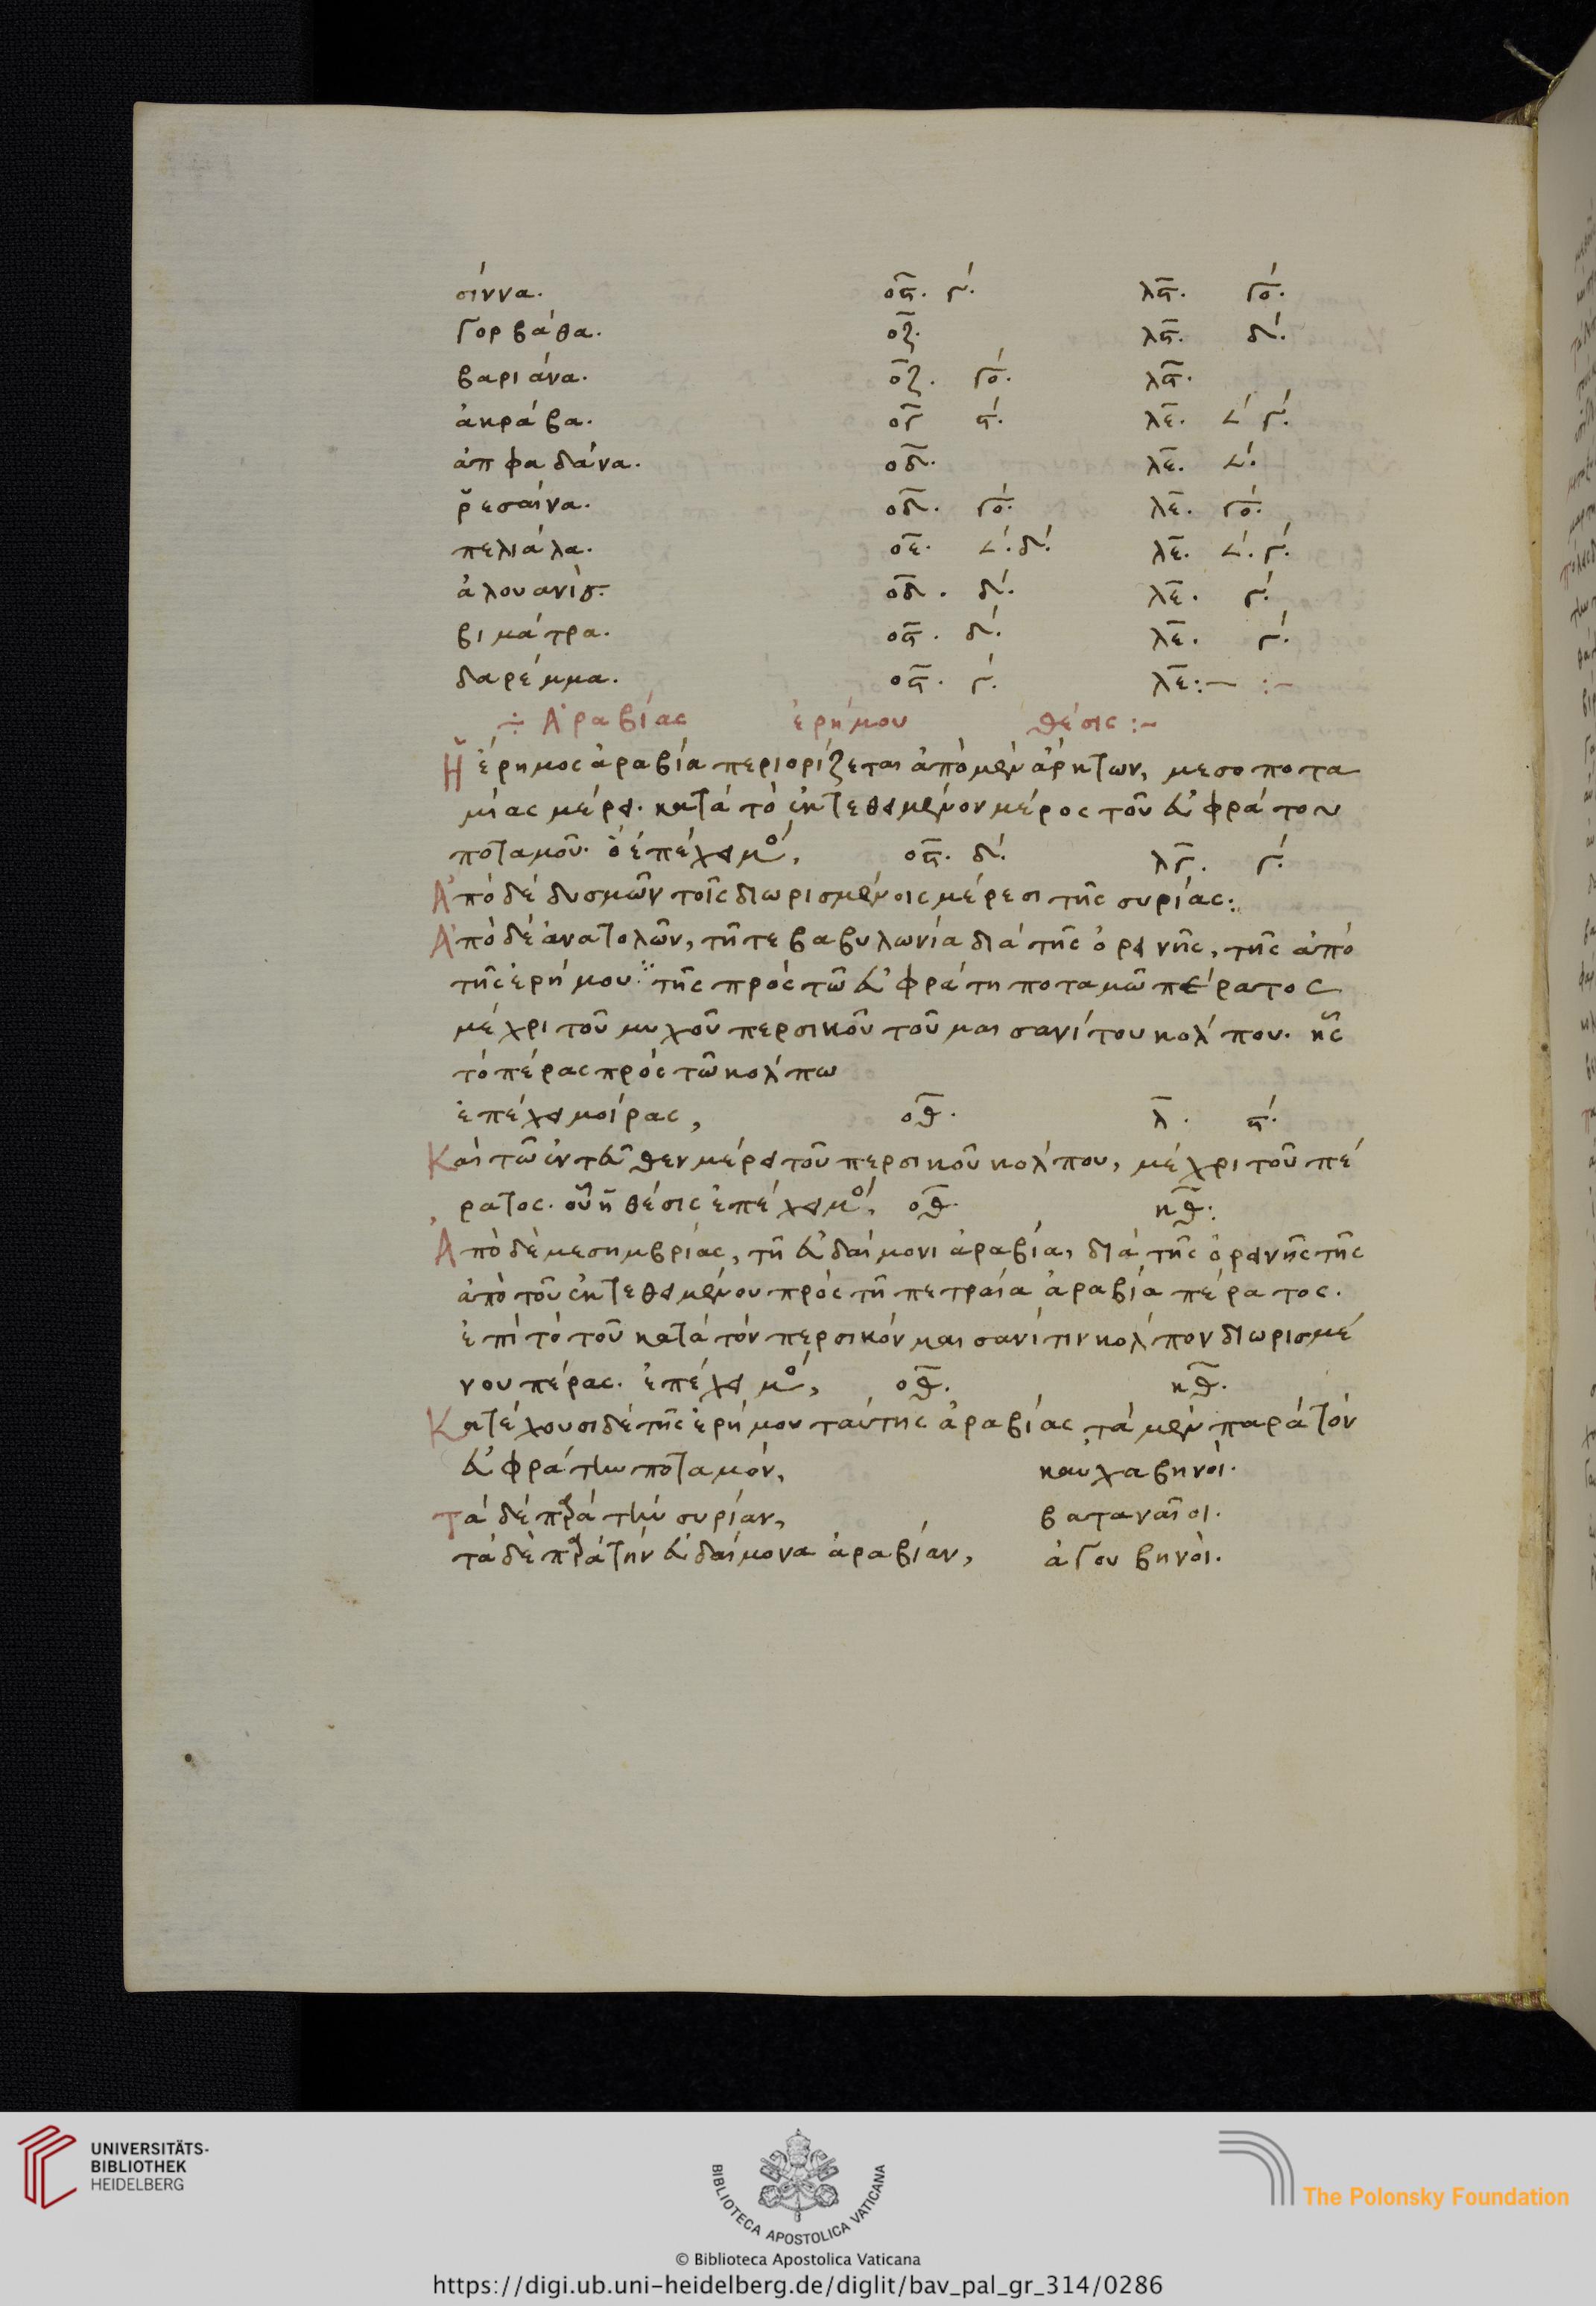 σίννα. οϛ̅. γ´. λϛ̅. γο´.
γορβάθα. οζ̅. λϛ̅. δ´.
βαριάνα. οζ̅. γο´. λϛ̅.
ἀκράβα. ογ̅ ϛ´. λε̅. ∠´ γ´.
ἀπφαδάνα. οδ̅. λε̅. ∠´.
ῥεσαίνα. οδ̅. γο´. λε̅. γο´.
πελιάλα. οε̅. ∠´. δ´. λε̅. ∠´. γ´.
ἀλουανίσ. οδ̅. δ´. λε̅. γ´.
βιμάτρα. οϛ̅. δ´. λε̅. γ´.
δαρέμμα. οϛ̅. γ´. λε̅:– :–
÷ Ἀραβίας ἐρήμου θέσις :–
Ἡ ἔρημος ἀραβία περιορίζεται ἀπὸ μὲν ἄρκτων, μεσοποτα
μίας μέρει. κατά τὸ ἐκτεθειμένον μέρος τοῦ εὐφράτου
ποταμοῦ. ὃ ἐπέχει μο´, οϛ̅. δ´. λγ̅. γ´.
Ἀπὸ δέ δυσμῶν τοῖς διωρισμένοις μέρεσι τῆς συρίας:
Ἀπὸ δέ ἀνατολῶν, τῆ τε βαβυλωνία διά τῆς ὀρεινῆς, τῆς ἀπό
τῆς ἐρήμου τῆς πρός τῶ εὐφράτη ποταμῶ πέρατος
μέχρι τοῦ μυχοῦ περσικοῦ τοῦ μαισανίτου κολπου. ἧς
τό πέρας πρός τῶ κολπω
ἐπέχει μοίρας, οθ̅. λ̅. ϛ´.
Καί τῶ ἐντεῦθεν μέρει τοῦ περσικοῦ κόλπου, μέχρι τοῦ πέ
ρατος. οὗ ἡ θέσις ἐπέχει μο´, οθ̅. κθ̅:
Ἀπὸ δὲ μεσημβρίας, τῆ εὐδαίμονι ἀραβία, διά τῆς ὀρεινῆς τῆς
ἀπὸ τοῦ ἐκτεθειμένου πρός τῆ πετραία ἀραβία πέρατος.
ἐπί τό τοῦ κατά τόν περσικόν μαισανίτιν κόλπον διωρισμέ
νου πέρας. ἐπέχει μο´, οθ̅. κθ̅.
Κατέχουσι δέ τῆς ἐρήμου ταύτης ἀραβίας τά μὲν παρά τόν
εὐφράτην ποταμόν, καυχαβηνοί.
τά δέ παρά τήν συρίαν, βαταναῖοι.
τά δέ παρά τήν εὐδαίμονα ἀραβίαν, ἀγουβηνοί.
UNIVERSITÄTS-
BIBLIOTHEK
HEIDELBERG
BIBLIOTECA APOSTOLICA VATICANA
The Polonsky Foundation
© Biblioteca Apostolica Vaticana
https://digi.ub.uni-heidelberg.de/diglit/bav_pal_gr_314/0286